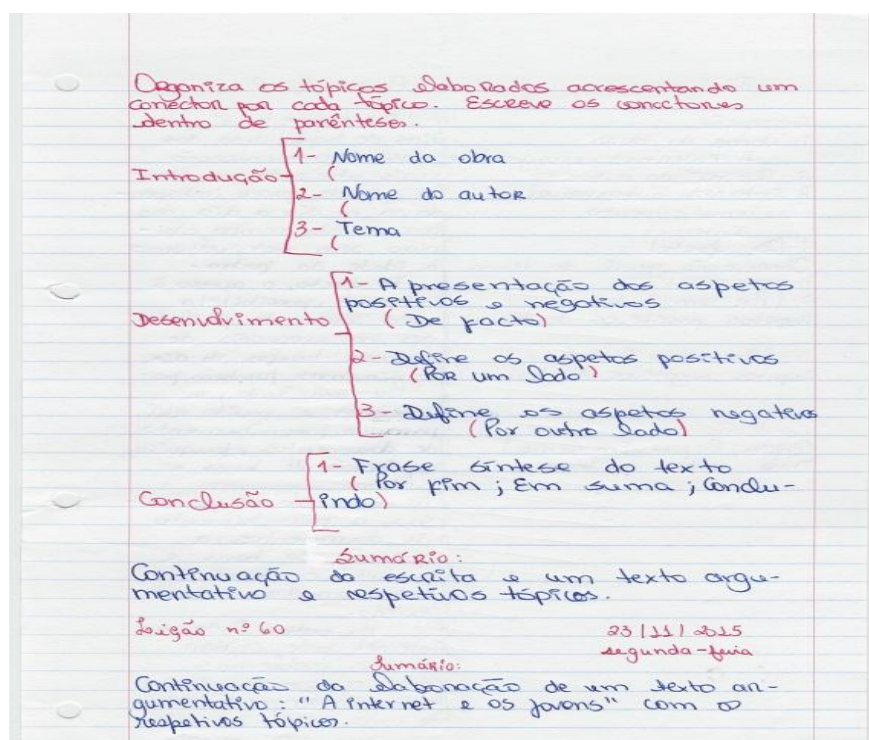 Organiza os tópicos elaborados acrescentando um
conector por cada tópico. Escreve os conectores
dentro de parênteses.
Introdução
1- Nome da obra
(
2- Nome do autor
(
3- Tema
(
Desenvolvimento
1- A presentação dos aspetos
positivos e negativos
(De facto)
2- Define os aspetos positivos
(Por um lado)
3- Define os aspetos negativos
(Por outro lado)
Conclusão
1- Frase síntese do texto
(Por fim; Em suma; Conclu-
indo)
Sumário:
Continuação da escrita e um texto argu-
mentativo e respetivos tópicos.
Lição nº 60
23/11/2015
segunda-feira
Sumário:
Continuação da elaboração de um texto ar-
gumentativo: "A internet e os jovens" com o
respetivos tópicos.